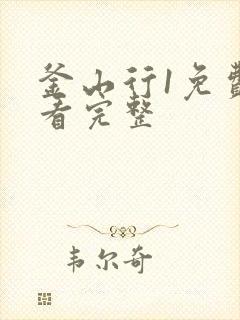 釜山行1免费
看完整
韦尔奇